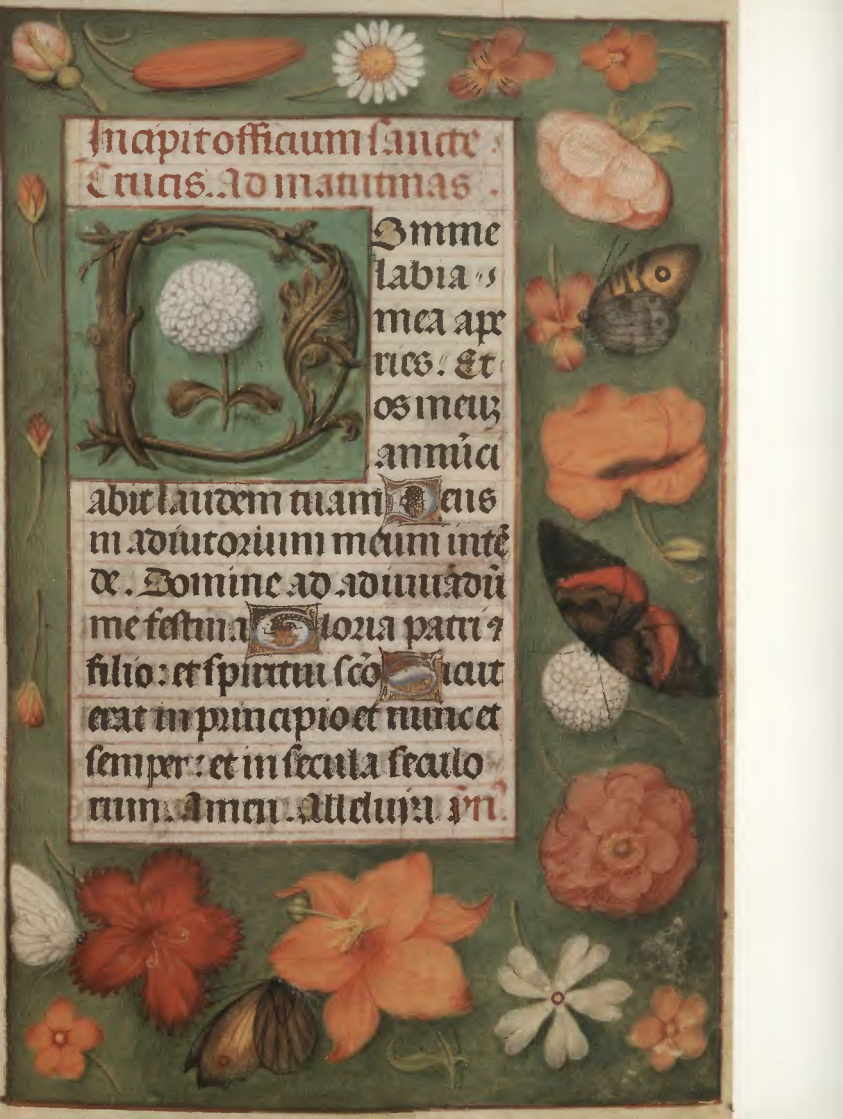 Incipit officium sancte
Crucis. Ad matutinas.
Domine
labia
mea ape
ries. Et
os meuz
annūci
abit laudem tuam Deus
in adiutorium meum intē
de. Domine ad adiuuādū
me festina Gloria patri ⁊
filio: et spiritui scō Sicut
erat in principio et nunc et
semper: et in secula seculo
rum. Amen. Alleluia.